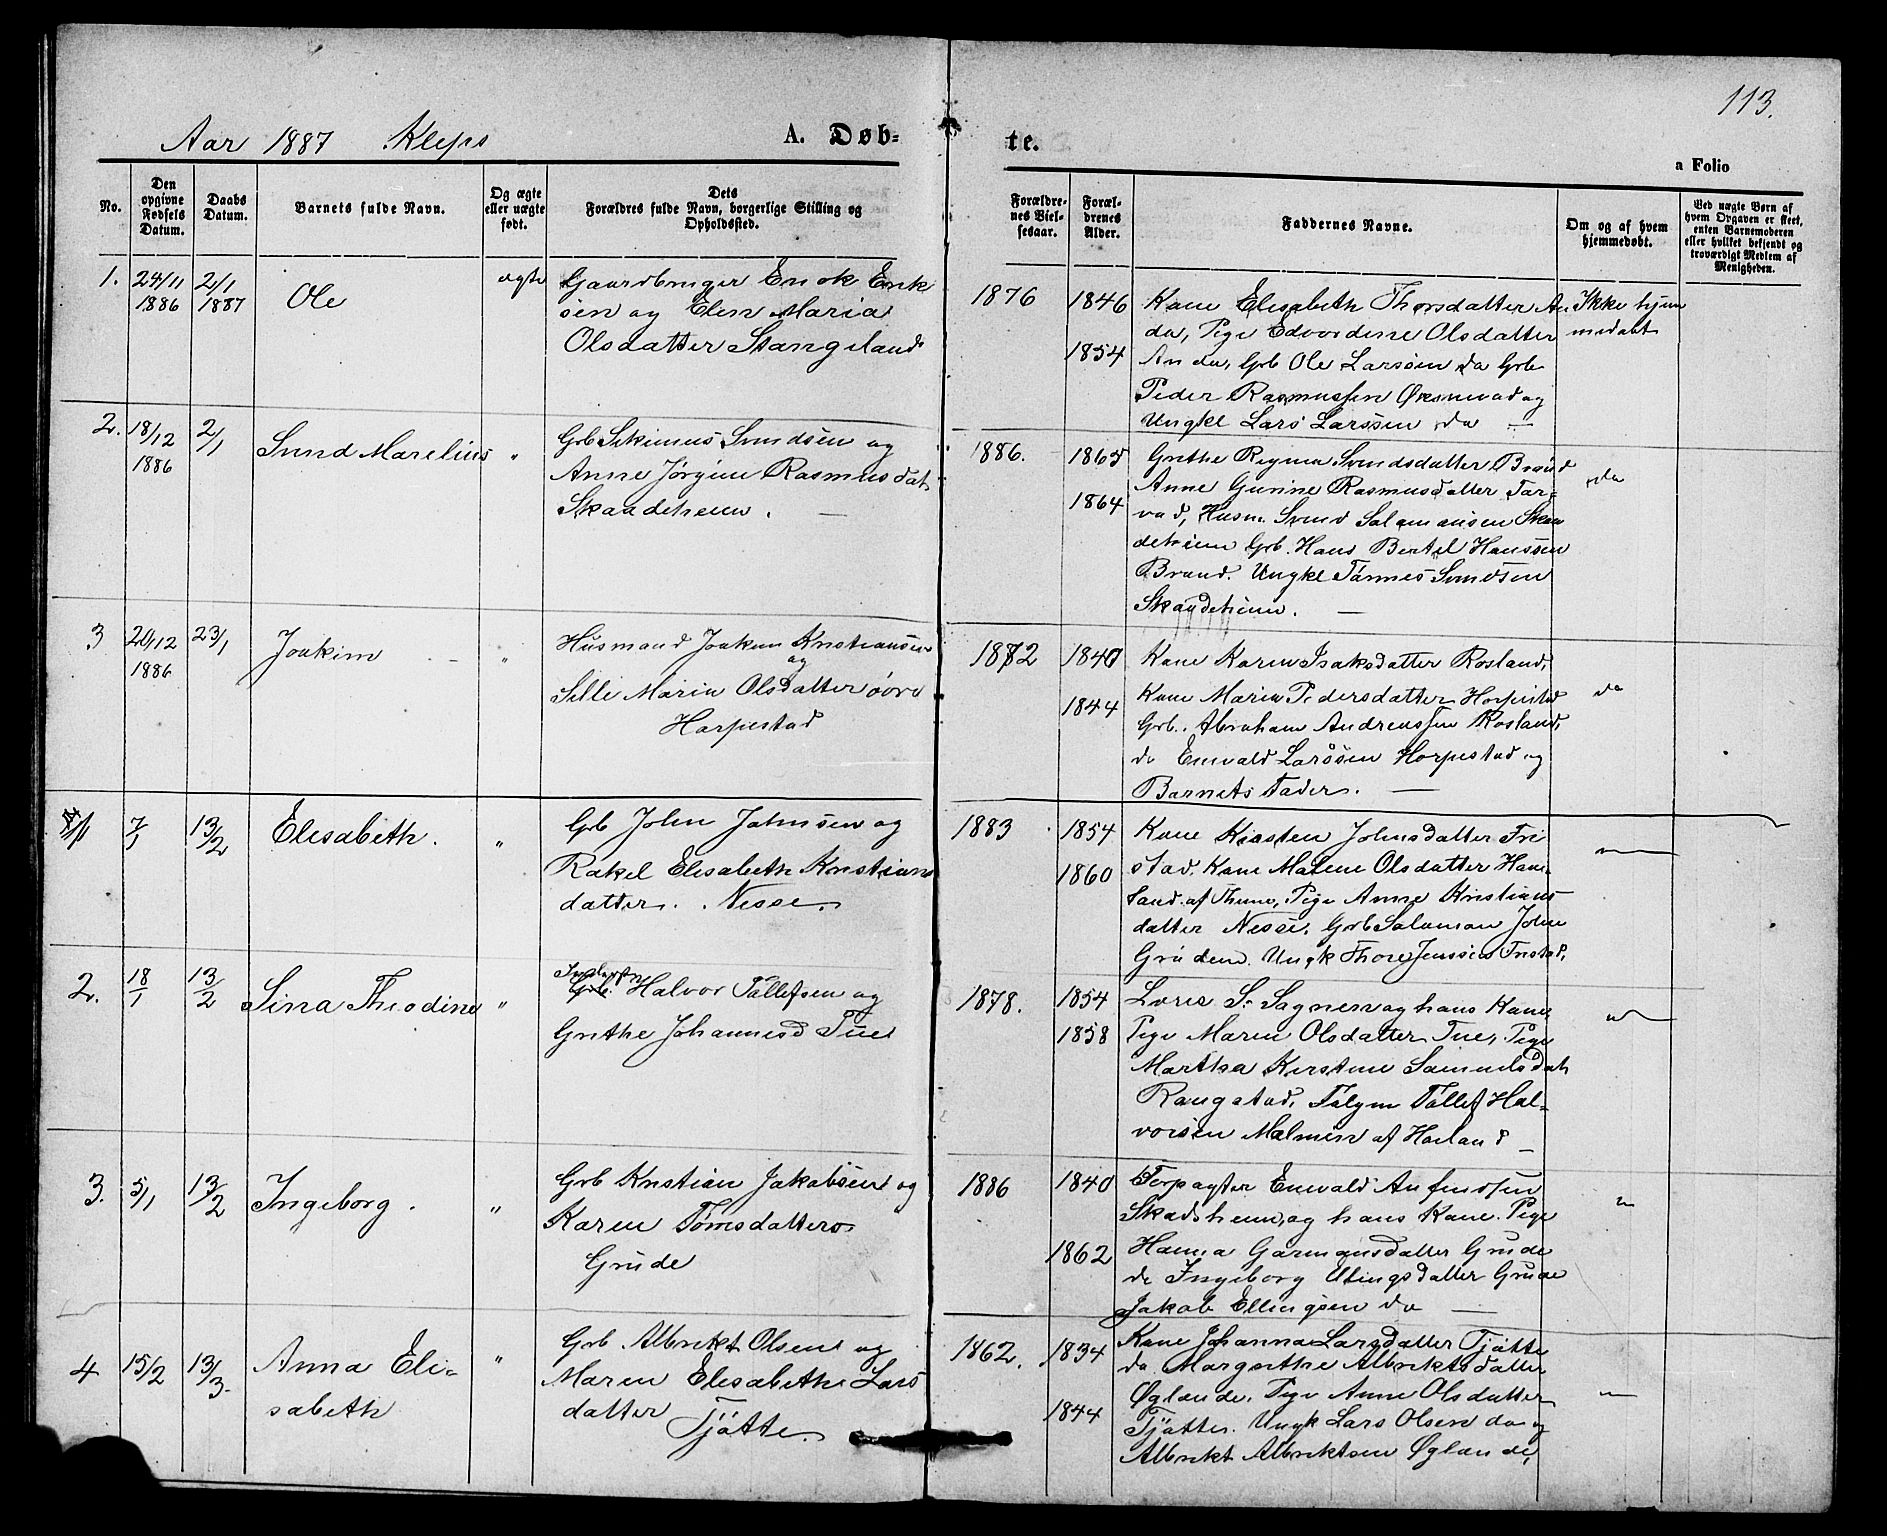 113.
Aar 1887 Kleps
A. Døb-
te.
a Folio
No.
Den
opgivne
Fødsels
Datum.
Daabs
Datum.
Barnets fulde Navn.
Og ægte
eller uægte
født.
Dets
Forældres fulde Navn, borgerlige Stilling og
Opholdssted.
Forældre-
nes Viel-
sesaar.
Foræl-
drenes
Alder.
Faddernes Navne.
Om og af hvem
hjemmedøbt.
Ved uægte Børn af
hvem Opgaven er skeet,
enten Barnemoderen
eller hvilket bekjendt og
troværdigt Medlem af
Menigheden.
1.
24/11
1886
2/1
1887
Ole
ægte
Gaardbruger Enok Erik
sen og Elen Maria
Olsdatter Stangeland
1876
1846
1854
Kone Elisabeth Thorsdatter An
da, Pige Edvardine Olsdatter
Anda, Grb Ole Larsen da Grb
Peder Rasmussen Øksnevad og
Ungkl Lars Larssen da —
Ikke hjem
medøbt
2.
18/12
1886
2/1
Svend Marelius
"
Grb Svendsen og
Anne Jørgine Rasmusdat
Skaadeheim. —
1886.
1865
1864
Grethe Regine Svendsdatter Braud
Anne Gurine Rasmusdatter Tar-
vad, Husm. Svend Salamonsen Skaa
deheim Grb. Hans Bertel Hanssen
Braud. Ungkl Tønnes Svendsen
Skaadeheim. —
da
3
20/12
1886
23/1
Joakim —
"
Husmand Joakim Kristiansen
og
Sille Maria Olsdatter øvre
Horpestad
1872
1840
1844
Kone Karen Isaksdatter Rosland,
Kone Maria Pedersdatter Horpestad
Grb. Abraham Andreassen Rosland,
do Enevald Larssen Horpestad og
Barnets Fader. —
da
7/1
13/2
Elisabeth.
"
Grb John Johnsen og
Rakel Elisabeth Kristians
datter. Nesse.
1883
1854
1860
Kone Kirsten Johnsdatter Fri
stad. Kone Malene Olsdatter Haa-
land af Thime, Pige Anne Kristians
datter Nesse. Grb Salamon John
Gruden. Ungk Thore Jenssen Fristad.
2.
18/1
13/2
Sina Theodine
"
Inderst
Grb. Halvor Tollefsen og
Grethe Johannesd Tue
1878.
1854
1858
Lores S. Sagnen og hans Kone,
Pige Maren Olsdatter Tue, Pige
Martha Kirstine Samuelsdat
Raugstad, Tollef Hal-
vorsen Malmin af Høiland —
3.
5/1
13/2
Ingeborg.
"
Grb Kristian Jakobsen og
Karen Tønnesdatter
Grude
1886
1840
1862
Forpagter Enevald Anfindsen
Skadsheim, og hans Kone. Pige
Hanna Garmgnusdatter Grude
do Ingeborg Ellingsdatter Grude
Jakob Ellingsen do —
4
15/2
13/3.
Anna Eli-
sabeth
"
Grb Albrikt Olsen og
Maren Elisabeth Lars
datter
Tjøtte.
1862.
1834
1844
Kone Johanna Larsdatter Tjøtte
do Margrethe Albriktsdatter
Øglænde. Pige Anne Olsdatter
Tjøtte. Ungk Lars Olsen do og
Albrikt Albriktsen Øglænde,